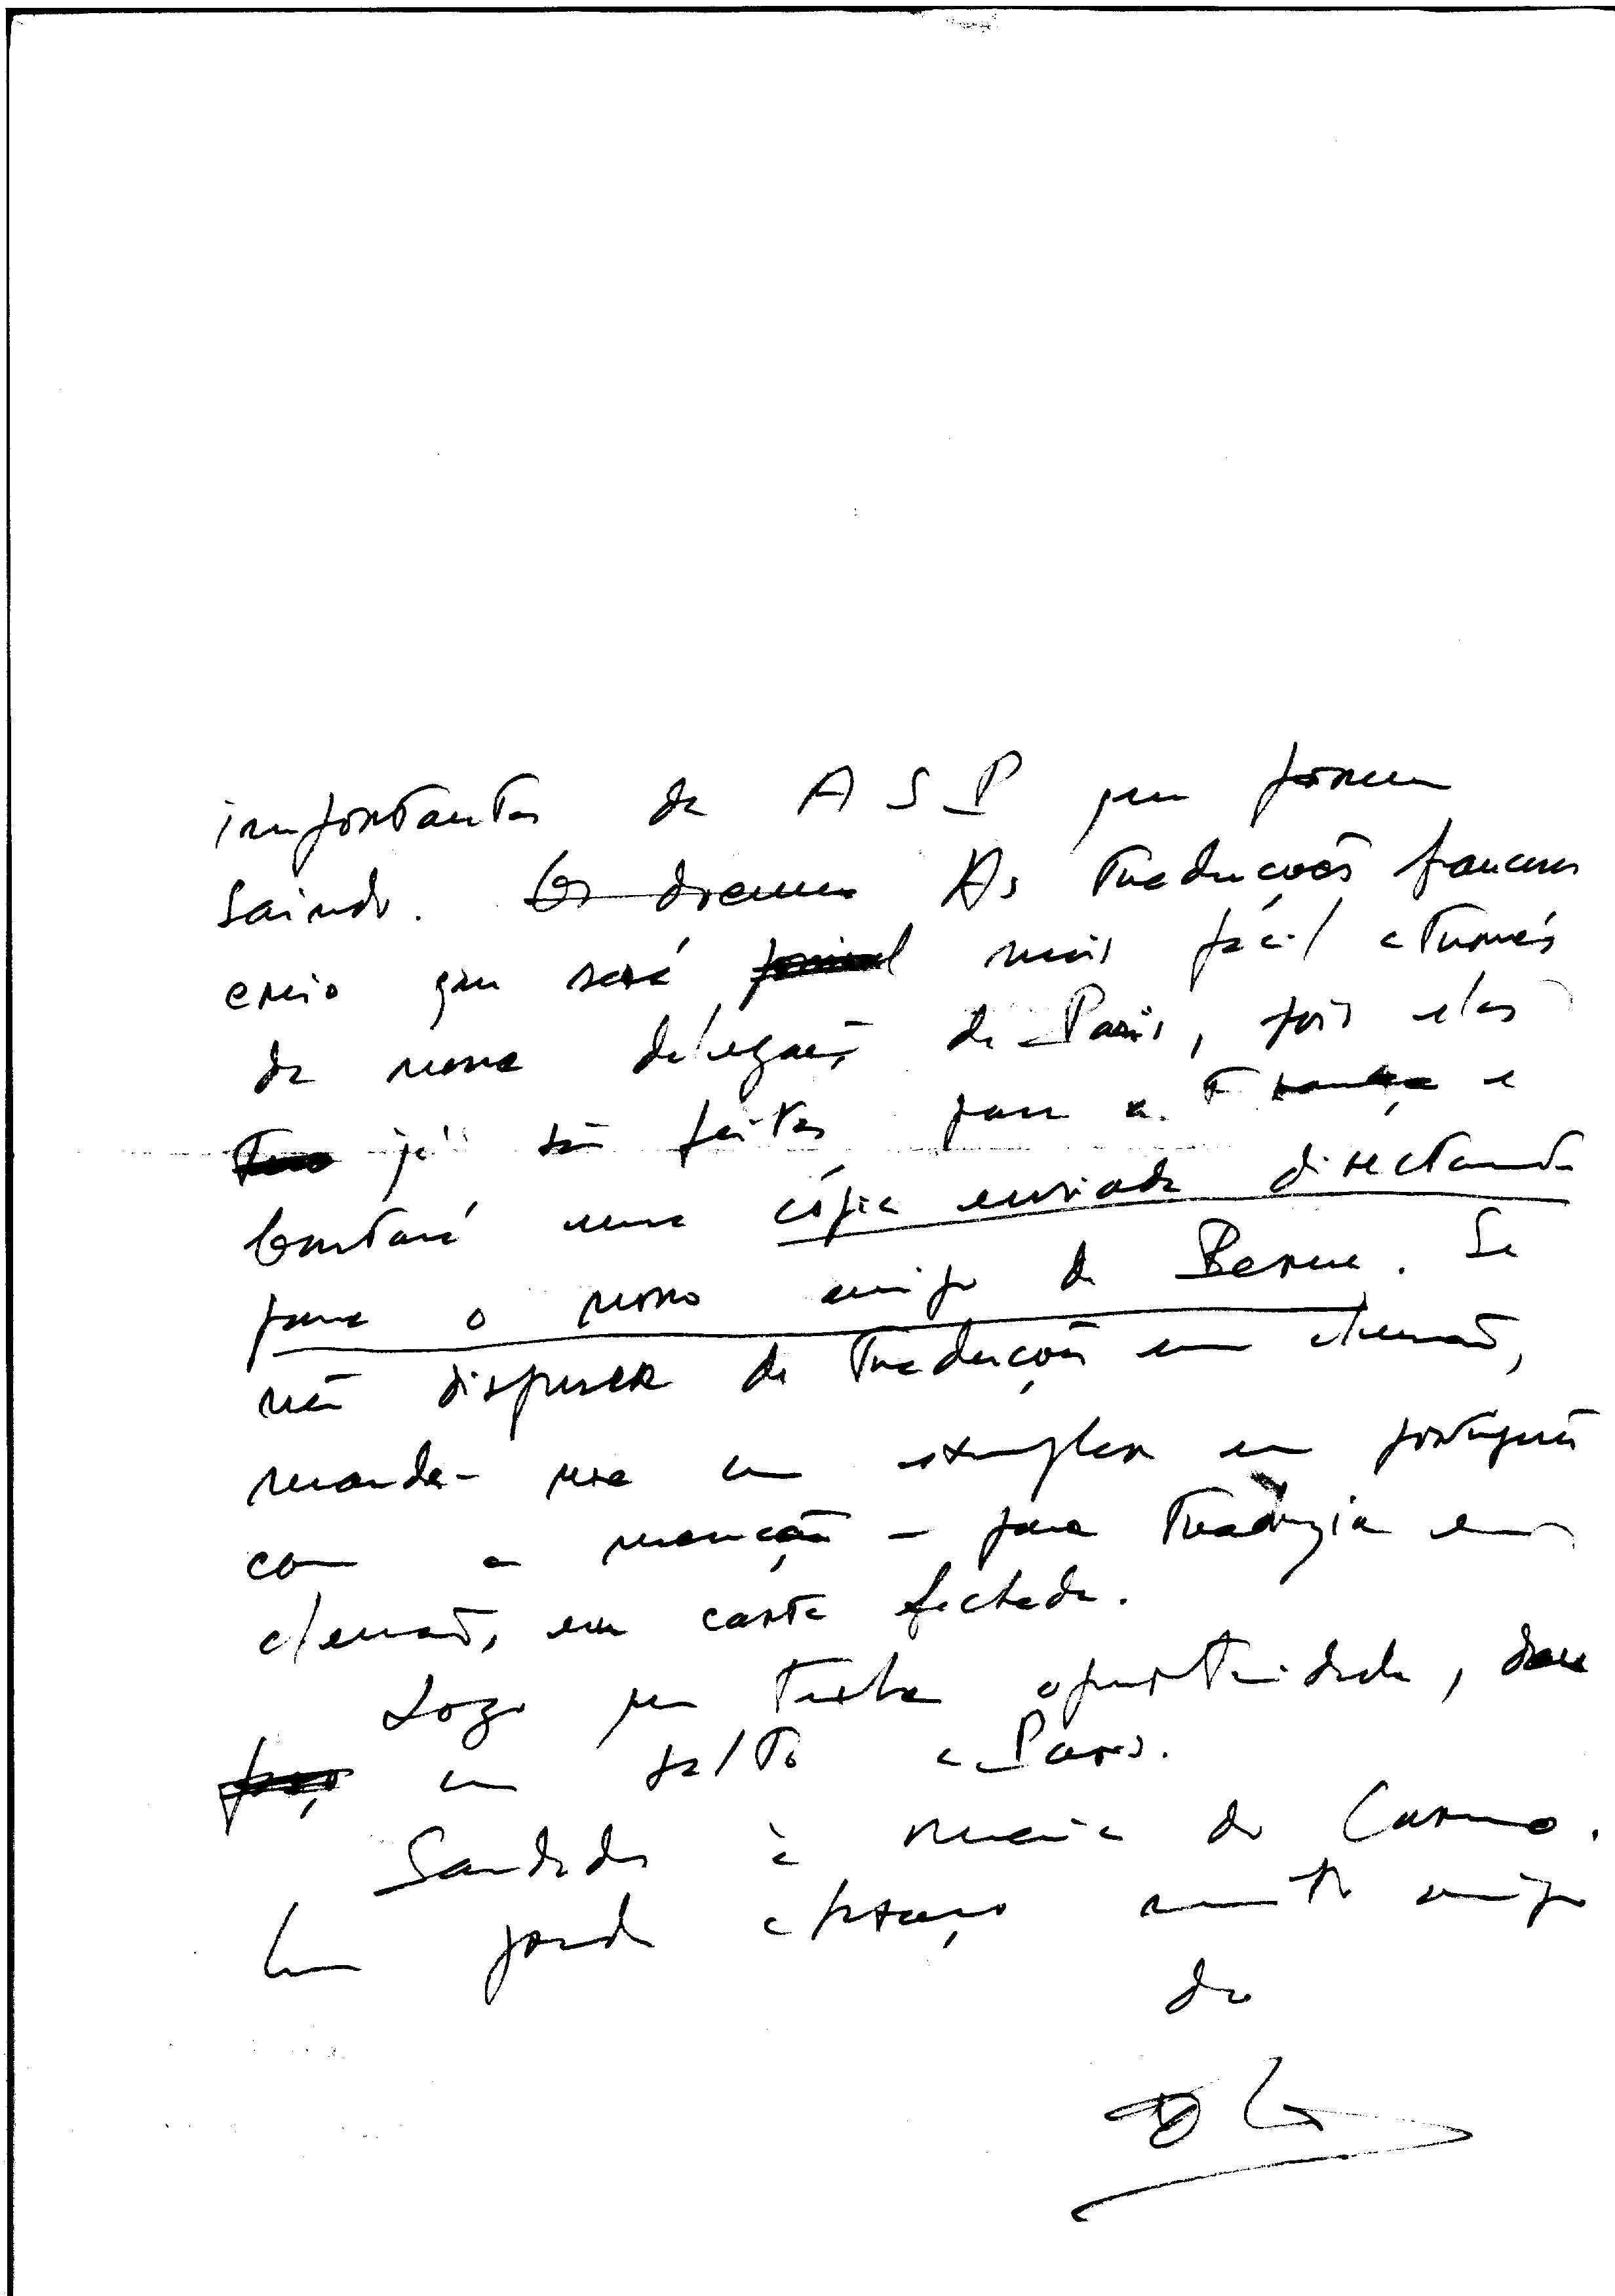 importantes da ASP que forem
saindo. Os documen As traducções francesas
creio que será mais fácil através
da nossa delegação de Paris, pois elas
já são feitas para a França e
bastará uma cópia enviada directamente
para o nosso amigo de Berne. Se
não dispuser de traducções em alemão,
manda-me um exemplar em português
com a menção - para traduzir em
alemão, em carta fechada.
Logo que tenha oportunidade, dou
um salto a Paris.
Saudades à Maria do Carmo.
Um grande abraço muito amigo
do